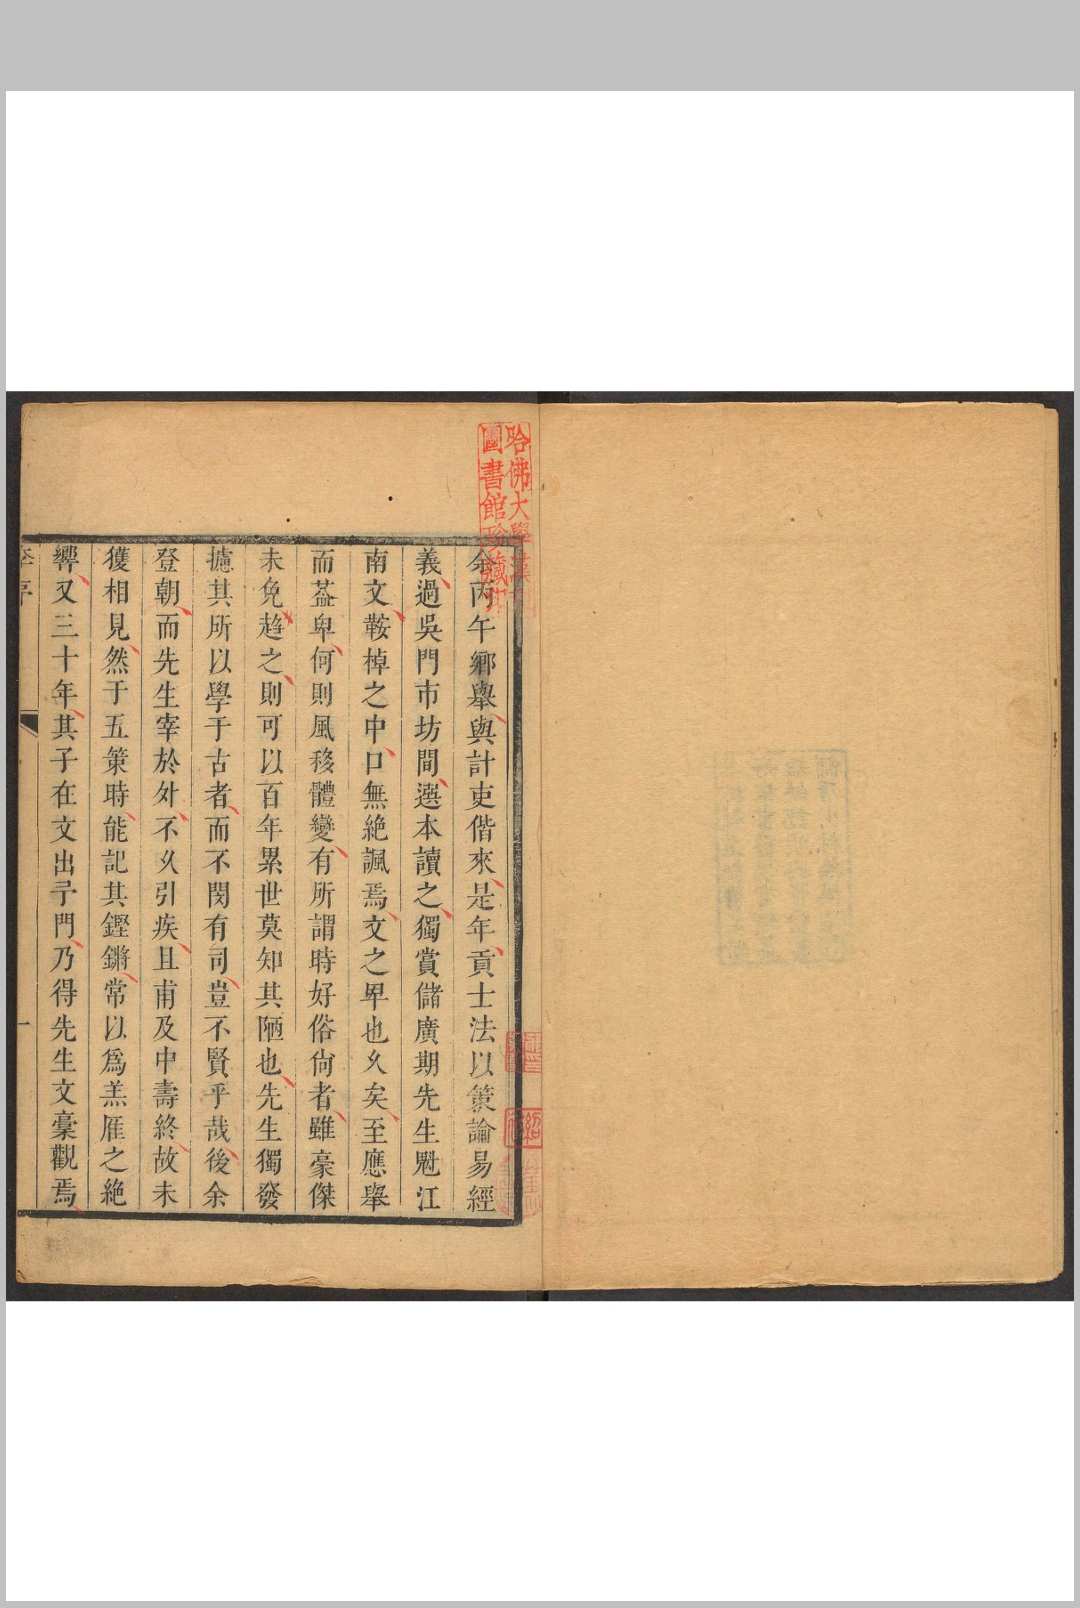 余丙午鄉舉與計吏偕來是年貢士法以策論易經
義過吳門市坊間選本讀之獨賞儲廣期先生尉江
南文鞍棹之中口無絶諷焉文之卑也久矣至應舉
而葢卑何則風移體變有所謂時好俗尙者雖豪傑
未免趨之則可以百年累世莫知其陋也先生獨發
攄其所以學于古者而不閔有司豈不賢乎哉後余
登朝而先生宰於外不久引疾且甫及中壽終故未
獲相見然于五策時能記其鏗鏘常以爲羔雁之絶
響又三十年其子在文出予門乃得先生文稾觀焉
李序
一
哈佛大學漢
圖書館珍藏